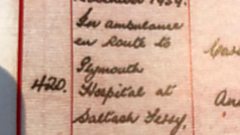 In ambulance
en Route to
Plymouth
420. Hospital at
Saltash Ferry.